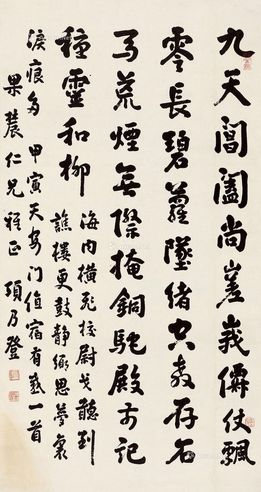 九天閶闔尚嵳峩儛仗飄
零長碧蘿墬緒空教存石
馬荒煙無際掩銅駝殿前記
種靈和柳
海内橫飛校尉戈聽到
譙樓更鼓靜鄉思夢裏
淚痕多
甲寅天安门值宿有感一首
果農仁兄雅正
項乃登